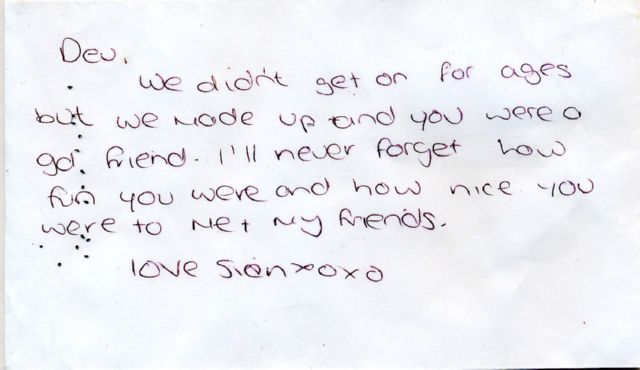 Dev,
we didn't get on for ages
but we made up and you were a
gd friend. I'll never forget how
fun you were and how nice you
were to me + my friends.
love Sian xoxo